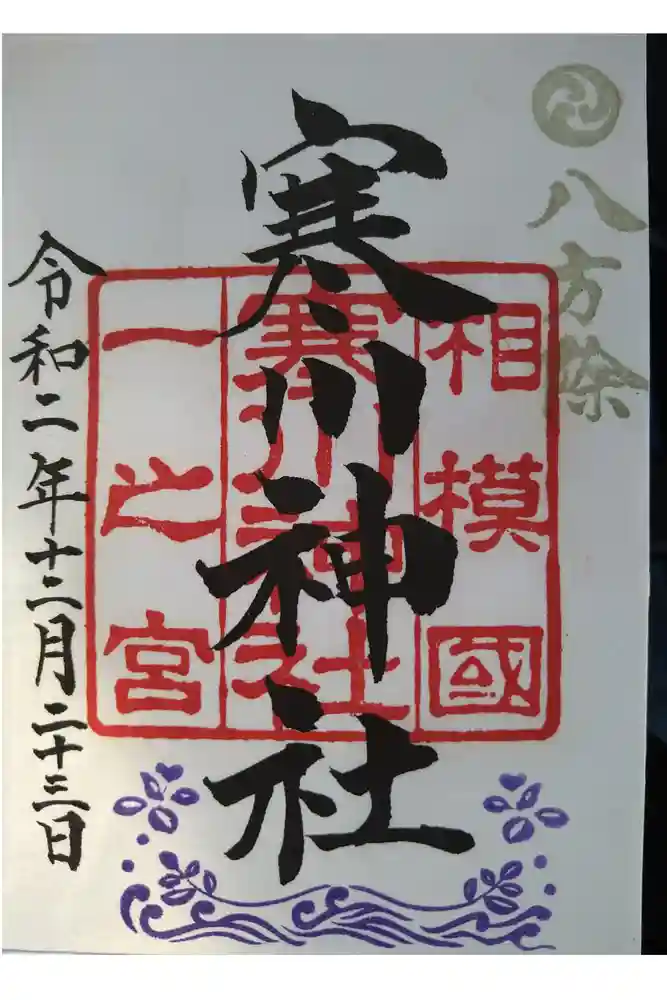 八方除
寒川神社
相模國
寒川神社
一之宮
令和二年十二月二十三日